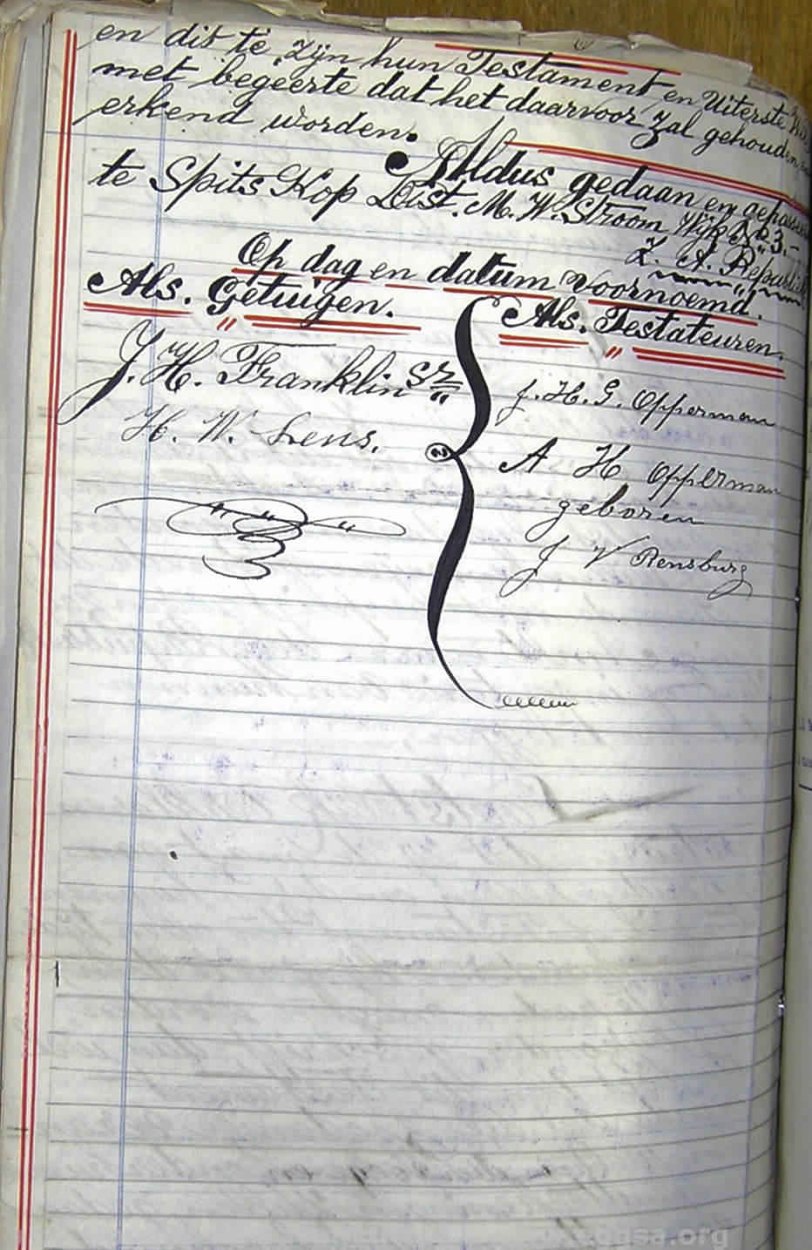 en dit te zijn hun Testament en Uiterste
met begeerte dat het daarvoor zal gehouden
erkend worden.
Aldus gedaan en gepasseerd
te Spits Kop Dist. M. W. Stroom Wijk No 3.
Z. A. Republiek
Op dag en datum voornoemd.
Als. Getuigen.
Als. Testateuren.
J. H. Franklin sr
J. H. G. Opperman
H. W. Lens.
A H Opperman
geboren
J V Rensburg